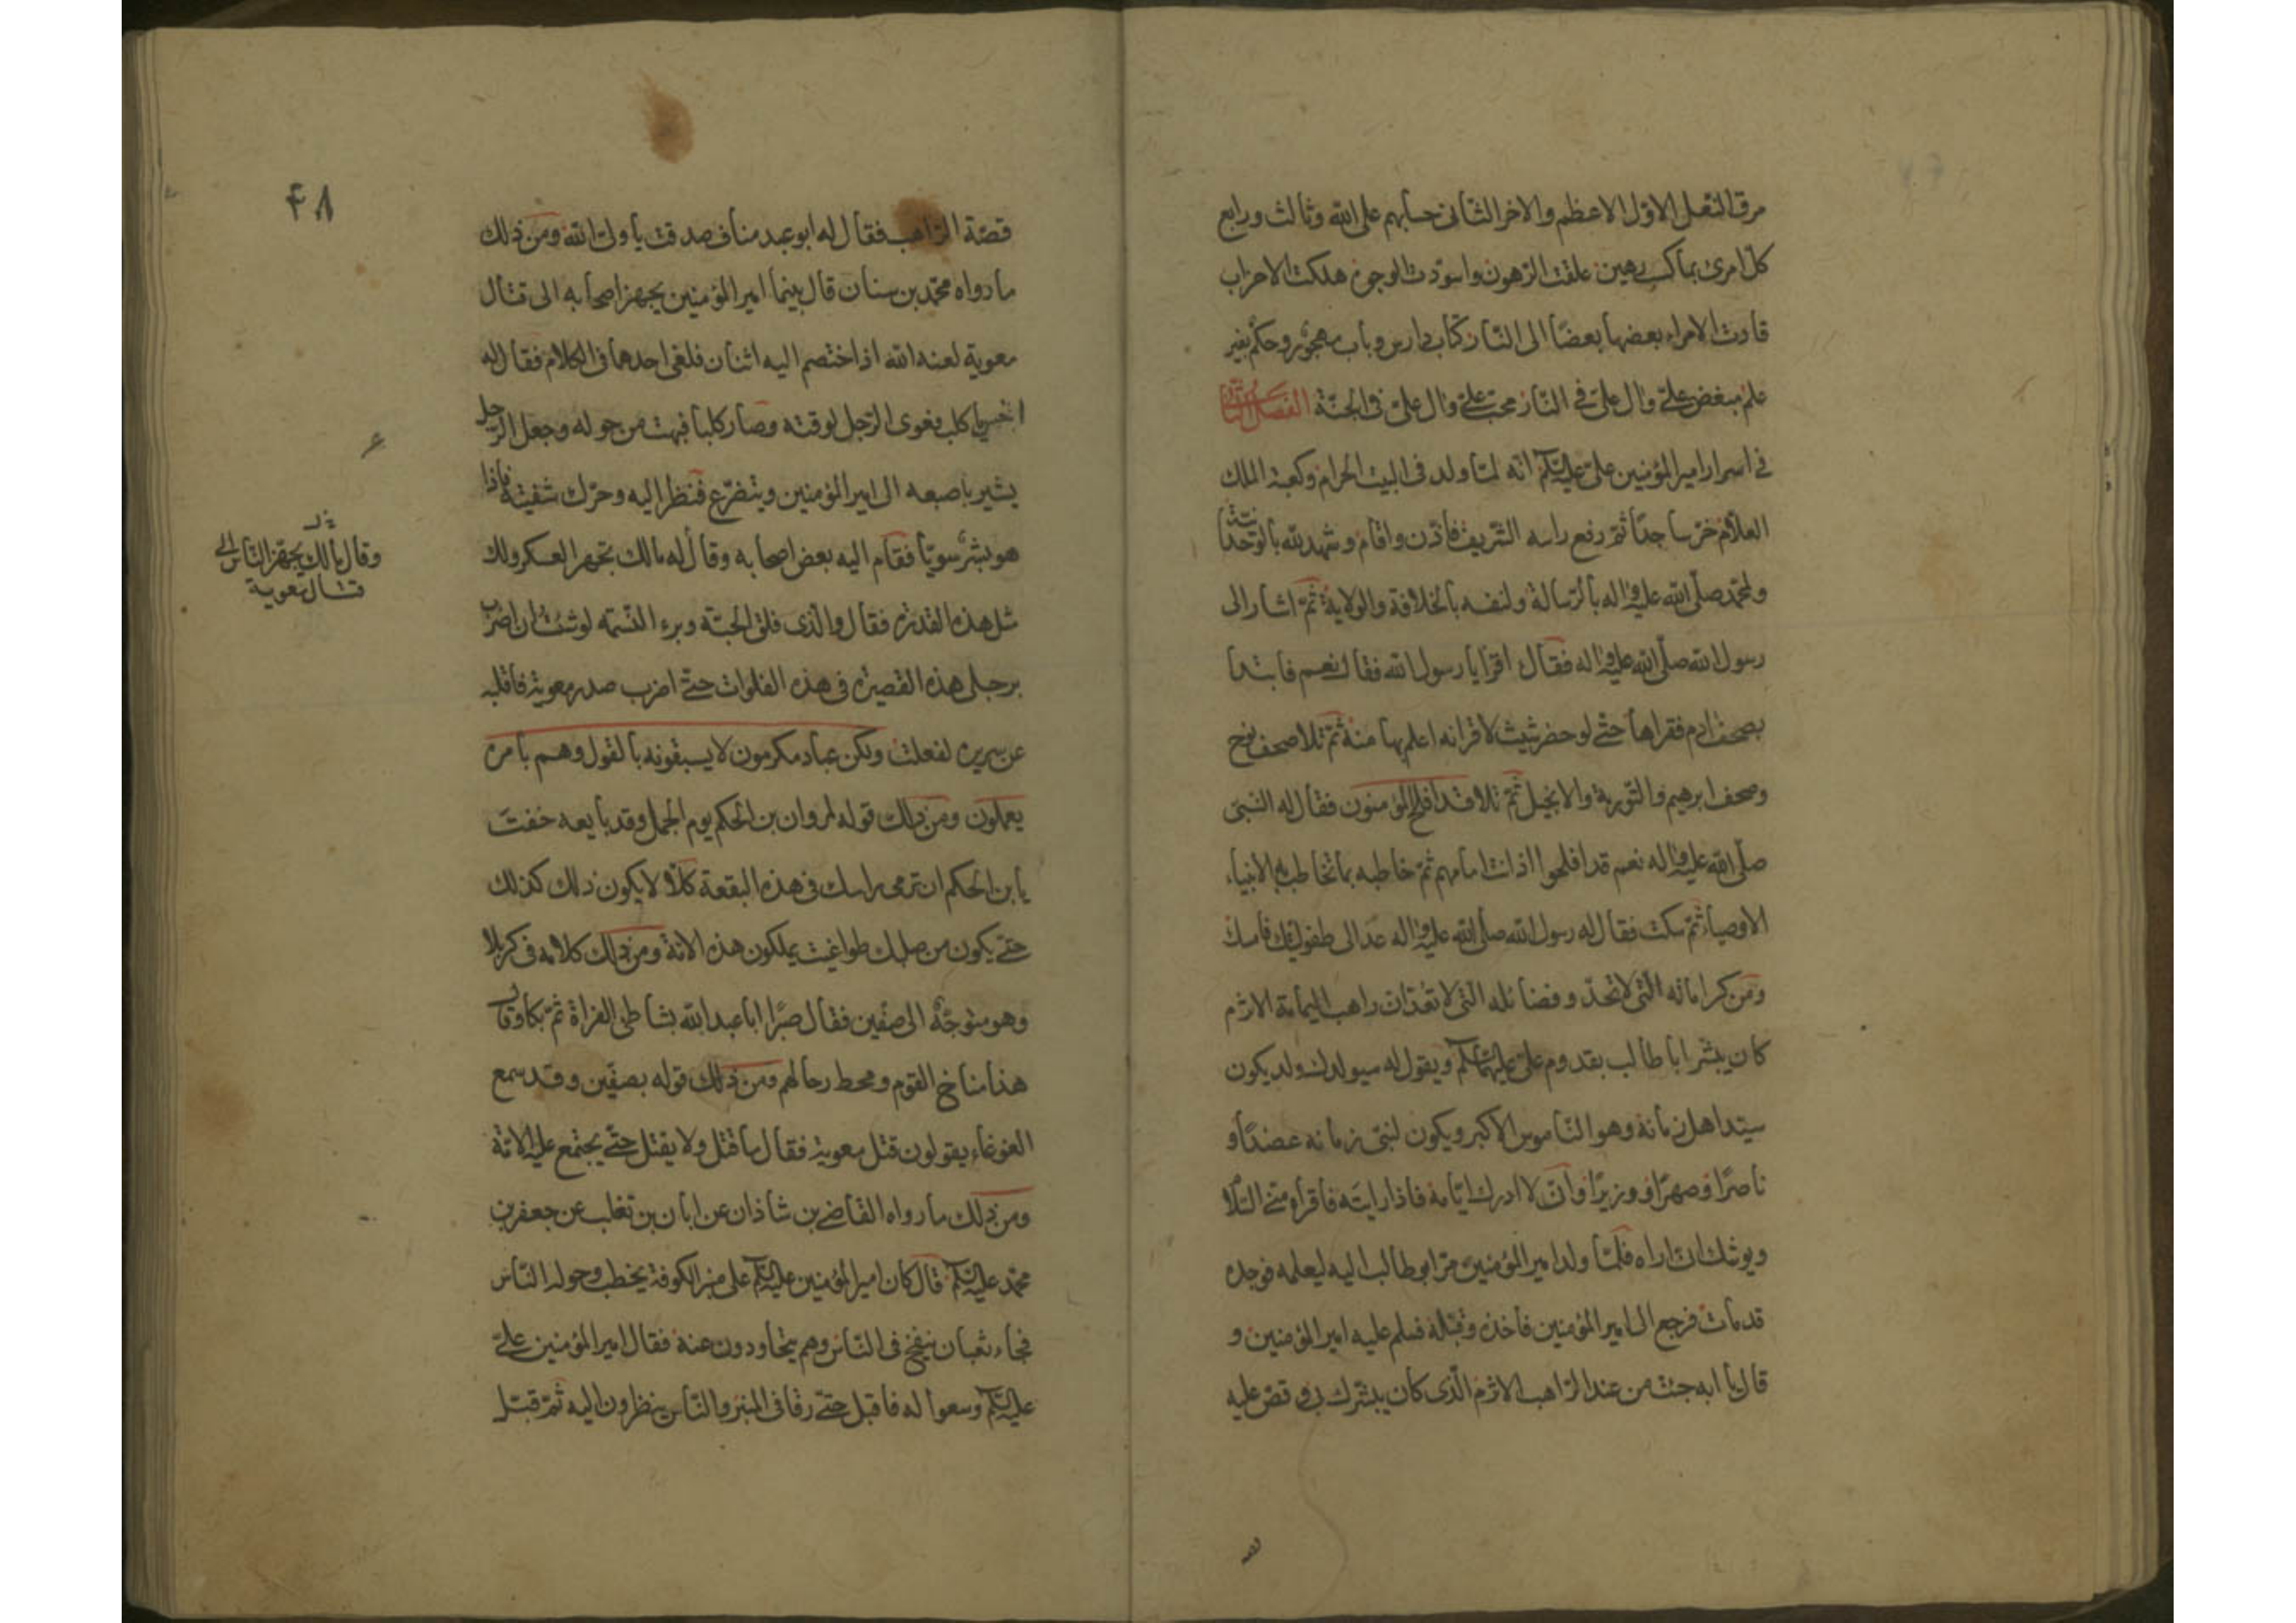 مرق النغل الاول الاعظم والاخر الثانی حسابهم علی الله وثالث ورابع
کل امرئ بما کسب رهین غلقت الرهون واسودت الوجوه هلکت الاحزاب
قادت الامراء بعضها بعضا الی النار کتاب دارس وباب مهجور وحکم بغیر
علم مبغض علی وال علی فی النار محب علی وال علی فی الجنة الفصل الثانی
فی اسرار امیر المؤمنین علی علیه السلام انه لما ولد فی البیت الحرام وکعبة الملک
العلام خر ساجدا ثم رفع راسه الشریف فاذن واقام وشهد لله بالوحدانیة
ولمحمد صلی الله علیه واله بالرسالة ولنفسه بالخلافة والولایة ثم اشار الی
رسول الله صلی الله علیه واله فقال اقرا یا رسول الله فقال نعم فابتدا
بصحف ادم فقراها حتی لو حضر شیث لاقر انه اعلم بها منه ثم تلا صحف نوح
وصحف ابرهیم والتوریة والانجیل ثم تلا قد افلح المؤمنون فقال له النبی
صلی الله علیه واله نعم قد افلحوا اذ انت امامهم ثم خاطبه بما تخاطب به الانبیاء
الاوصیاء ثم سکت فقال له رسول الله صلی الله علیه واله عد الی طفولیتک فامسک
ومن کراماته التی لا تحد وفضائله التی لا تعد ان راهب الیمامة الاثرم
کان یبشر ابا طالب بقدوم علی علیهما السلام ویقول له سیولد لک ولد یکون
سید اهل زمانه وهو الناموس الاکبر ویکون لنبی زمانه عضدا و
ناصرا وصهرا ووزیرا وانی لا ادرک ایامه فاذا رایته فاقراه منی السلام
ویوشک ان اراه فلما ولد امیر المؤمنین مر ابو طالب الیه لیعلمه فوجده
قد مات فرجع الی امیر المؤمنین فاخذه وقبله فسلم علیه امیر المؤمنین و
قال یا ابه جئت من عند الراهب الاثرم الذی کان یبشرک بی وقص علیه
۴۸
قصة الراهب فقال له ابو عبد مناف صدقت یا ولی الله ومن ذلک
ما رواه محمد بن سنان قال بینما امیر المؤمنین یجهز اصحابه الی قتال
معویة لعنه الله اذ اختصم الیه اثنان فلغی احدهما فی الکلام فقال له
اخس یا کلب فعوی الرجل لوقته وصار کلبا فبهت من حوله وجعل الرجل
یشیر باصبعه الی امیر المؤمنین ویتضرع فنظر الیه وحرک شفتیه فاذا
هو بشر سویا فقام الیه بعض اصحابه وقال له مالک تجهز العسکر ولک
مثل هذه القدرة فقال والذی فلق الحبة وبرء النسمة لو شئت ان اضرب
برجلی هذه القصیرة فی هذه الفلوات حتی اضرب صدر معویة فاقلبه
عن سریره لفعلت ولکن عباد مکرمون لا یسبقونه بالقول وهم بامره
یعملون ومن ذلک قوله لمروان بن الحکم یوم الجمل وقد بایعه خفت
یا بن الحکم ان ترمی راسک فی هذه البقعة کلا لا یکون ذلک کذلک
حتی یکون من صلبک طواغیت یملکون هذه الامة ومن ذلک کلامه فی کربلا
وهو متوجه الی صفین فقال صبرا ابا عبد الله بشاطئ الفراة ثم بکا وقال
هذا مناخ القوم ومحط رحالهم ومن ذلک قوله بصفین وقد سمع
الغوغاء یقولون قتل معویة فقال ما قتل ولا یقتل حتی یجتمع علیه الامة
ومن ذلک ما رواه القاضی بن شاذان عن ابان بن تغلب عن جعفر بن
محمد علیه السلام قال کان امیر المؤمنین علیه السلام علی منبر الکوفة یخطب وحوله الناس
فجاء ثعبان ینفخ فی الناس وهم یتحاودون عنه فقال امیر المؤمنین علی
علیه السلام وسعوا له فاقبل حتی رقا فی المنبر والناس ینظرون الیه ثم قبل
وقال مالک یجهز الناس الی
قتال معویة